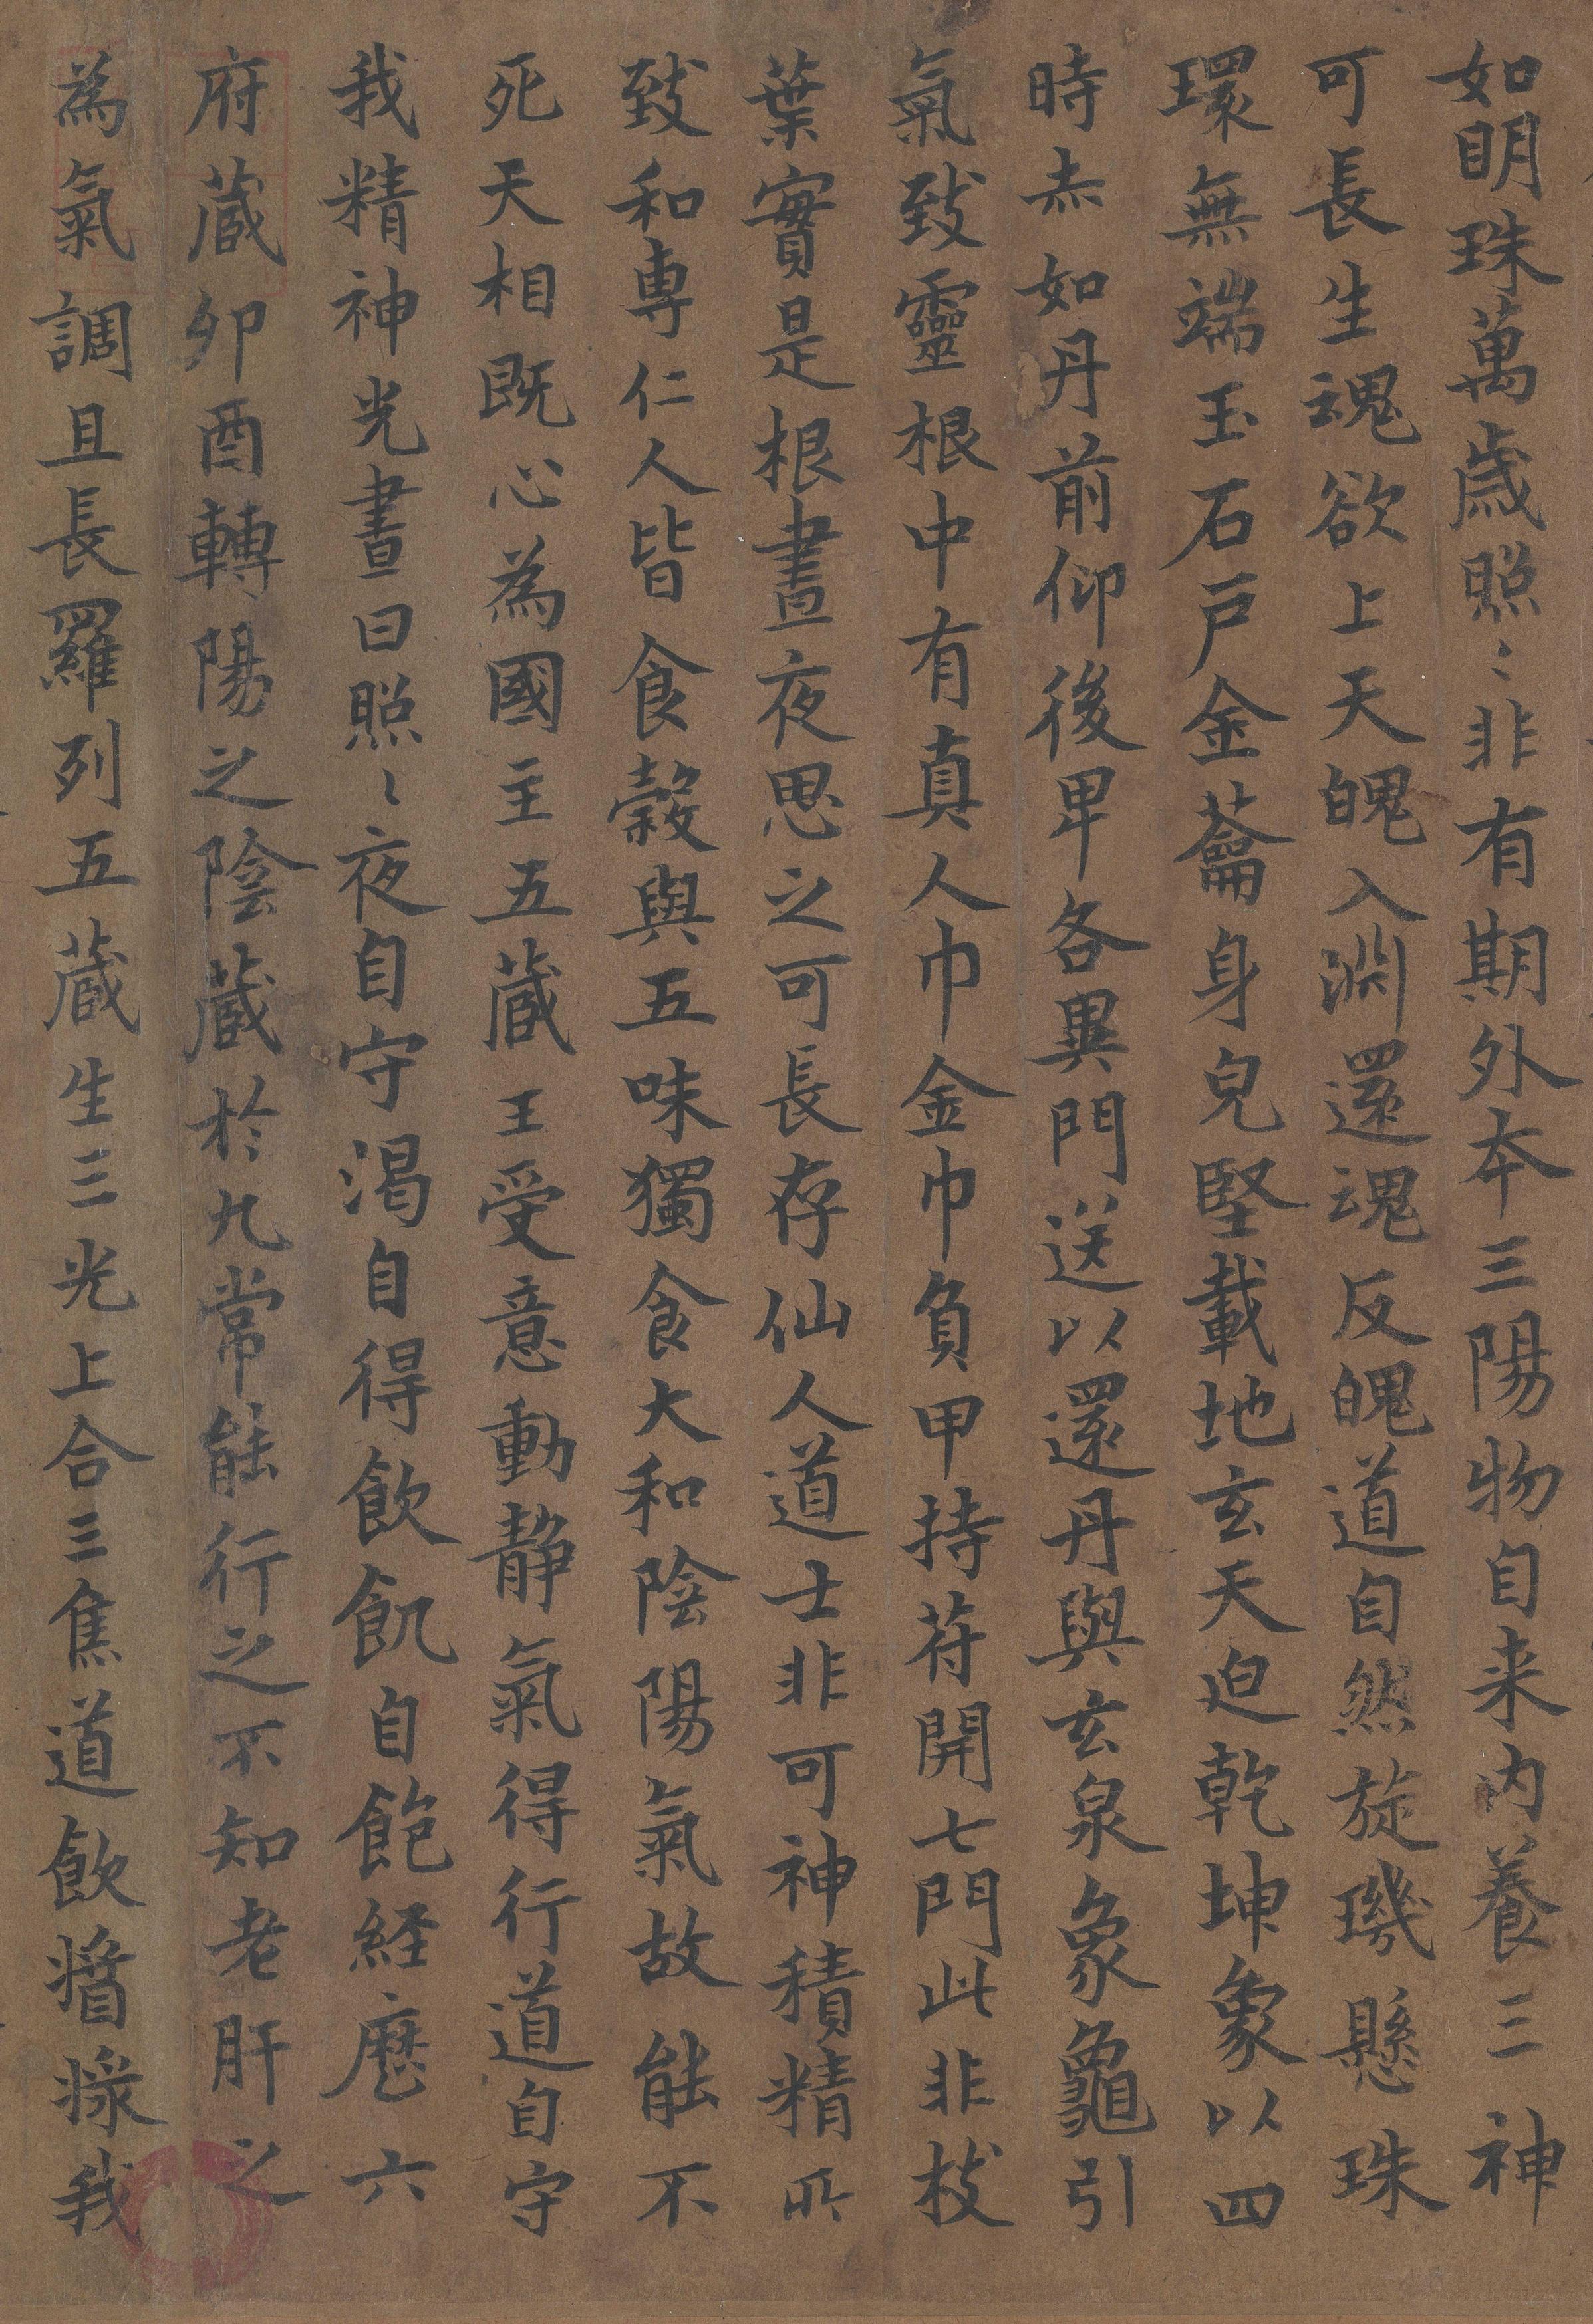 如明珠萬歲照〻非有期外本三陽物自来内養三神
可長生魂欲上天魄入淵還魂反魄道自然旋璣懸珠
環無端玉石戸金籥身皃堅載地玄天迫乾坤象以四
時赤如丹前仰後卑各異門送以還丹與玄泉象龜引
氣致靈根中有真人巾金巾負甲持苻開七門此非枝
葉實是根晝夜思之可長存仙人道士非可神積精所
致和専仁人皆食穀與五味獨食大和陰陽氣故能不
死天相既心為國主五蔵王受意動静氣得行道自守
我精神光晝日照〻夜自守渴自得飲飢自飽経歷六
府蔵卯酉轉陽之陰蔵於九常能行之不知老肝之
為氣調且長羅列五蔵生三光上合三焦道飲醬漿我